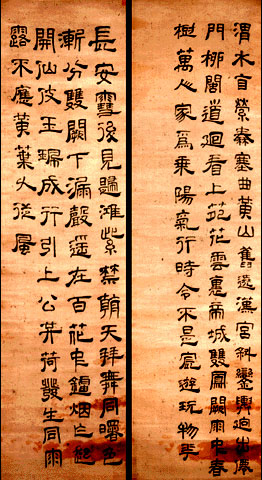 渭水自縈秦塞曲黃山舊遶漢宮斜鑾輿迥出僊
門柳閣道迴看上苑花雲裏帝城雙鳳闕雨中春
樹萬人家爲乘陽氣行時令不是宸遊玩物華
長安雪後見歸鴻紫禁朝天拜舞同曙色
漸分雙闕下漏聲遥在百花中爐烟乍起
開仙仗玉珮成行引上公共荷發生同雨
露不應黄葉久從風